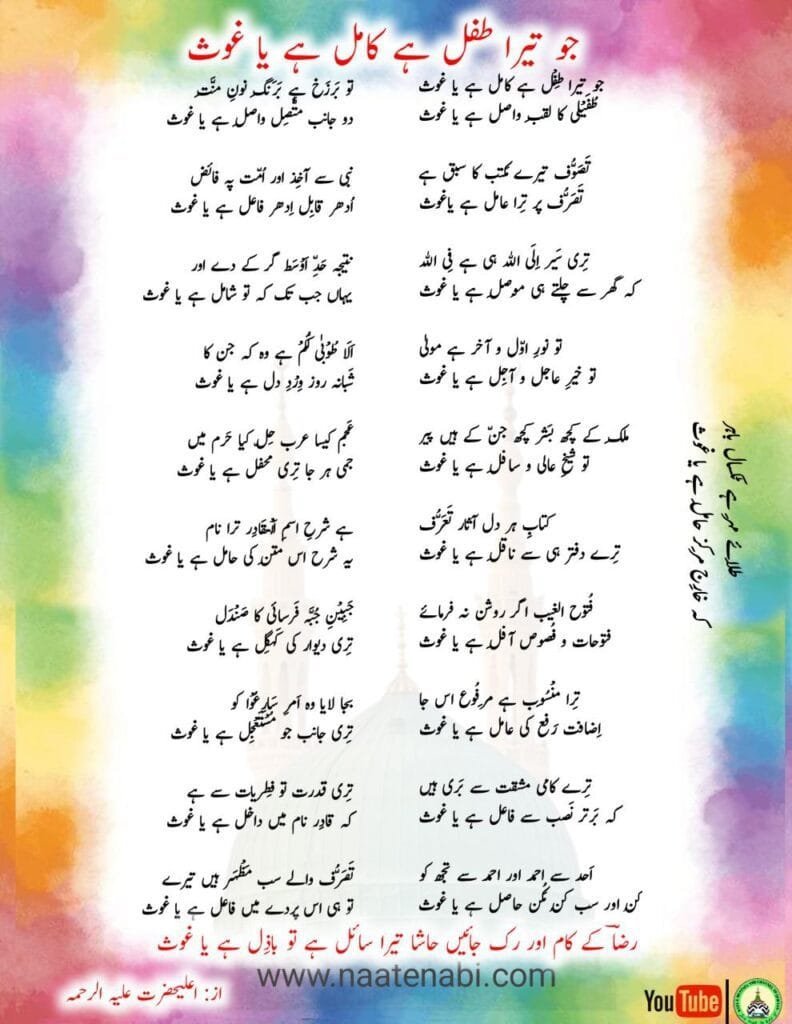 جو تیرا طفل ہے کامل ہے یا غوث
جو تیرا طِفْل ہے کامل ہے یا غوث
طُفَیلی کا لقب واصل ہے یا غوث
تَصَوُّف تیرے مکتب کا سبق ہے
تَصَرُّف پر تِرا عامل ہے یاغوث
تِری سَیر اِلَی اللہ ہی ہے فِی اللہ
کہ گھر سے چلتے ہی موصل ہے یا غوث
تو نورِ اوّل و آخر ہے مولٰی
تو خیرِ عاجل و آجِل ہے یا غوث
ملک کے کچھ بَشر کچھ جنّ کے ہیں پیر
تو شیخِ عالی و سافل ہے یا غوث
کتابِ ہر دل آثار تَعَرُّف
تِرے دفتر ہی سے ناقل ہے یا غوث
فُتوح الغیب اگر روشن نہ فرمائے
فتوحات و فُصوص آفل ہے یا غوث
تِرا مَنْسُوب ہے مرفُوع اس جا
اِضافت رَفع کی عامل ہے یا غوث
تِرے کامی مشقت سے بَری ہیں
کہ بَرتر نَصب سے فاعل ہے یا غوث
اَحد سے احمد اور احمد سے تجھ کو
کن اور سب کن مکُن حاصل ہے یا غوث
تو بَرزَخ ہے بَرَنگ نونِ مِنَّت
دو جانب متَّصِل واصل ہے یا غوث
نبی سے آخِذ اور اُمّت پہ فائض
اُدھر قابل اِدھر فاعل ہے یا غوث
نتیجہ حَدِّ اَوْسَط گر کے دے اور
یہاں جب تک کہ تو شامل ہے یا غوث
اَلَا طُوْبٰی لَکُمْ ہے وہ کہ جن کا
شَبانہ روز وِرْدِ دل ہے یا غوث
عَجَم کیسا عرب حِل کیا حَرم میں
جمی ہر جا تِری محفل ہے یا غوث
ہے شرحِ اسمِ اَلْقَادِر ترا نام
یہ شرح اس متن کی حامل ہے یا غوث
جَبِیْنِ جُبّہ فَرسائی کا صَنْدَل
تِری دیوار کی کَہگِل ہے یا غوث
بجا لایا وہ اَمرِ سَارِعُوْا کو
تِری جانب جو مُسْتَعْجِل ہے یا غوث
تِری قدرت تو فِطریات سے ہے
کہ قادِر نام میں داخل ہے یا غوث
تَصَرُّف والے سب مَظْہَر ہیں تیرے
تو ہی اس پردے میں فاعل ہے یا غوث
طلائے مہر ہے ٹکسال باہر
کہ خارِج مرکز حامِل ہے یا غوث
رضاؔ کے کام اور رک جائیں حاشا تیرا سائل ہے تو باذِل ہے یا غوث
www.naatenabi.com
از: اعلیحضرت علیہ الرحمہ
YouTube